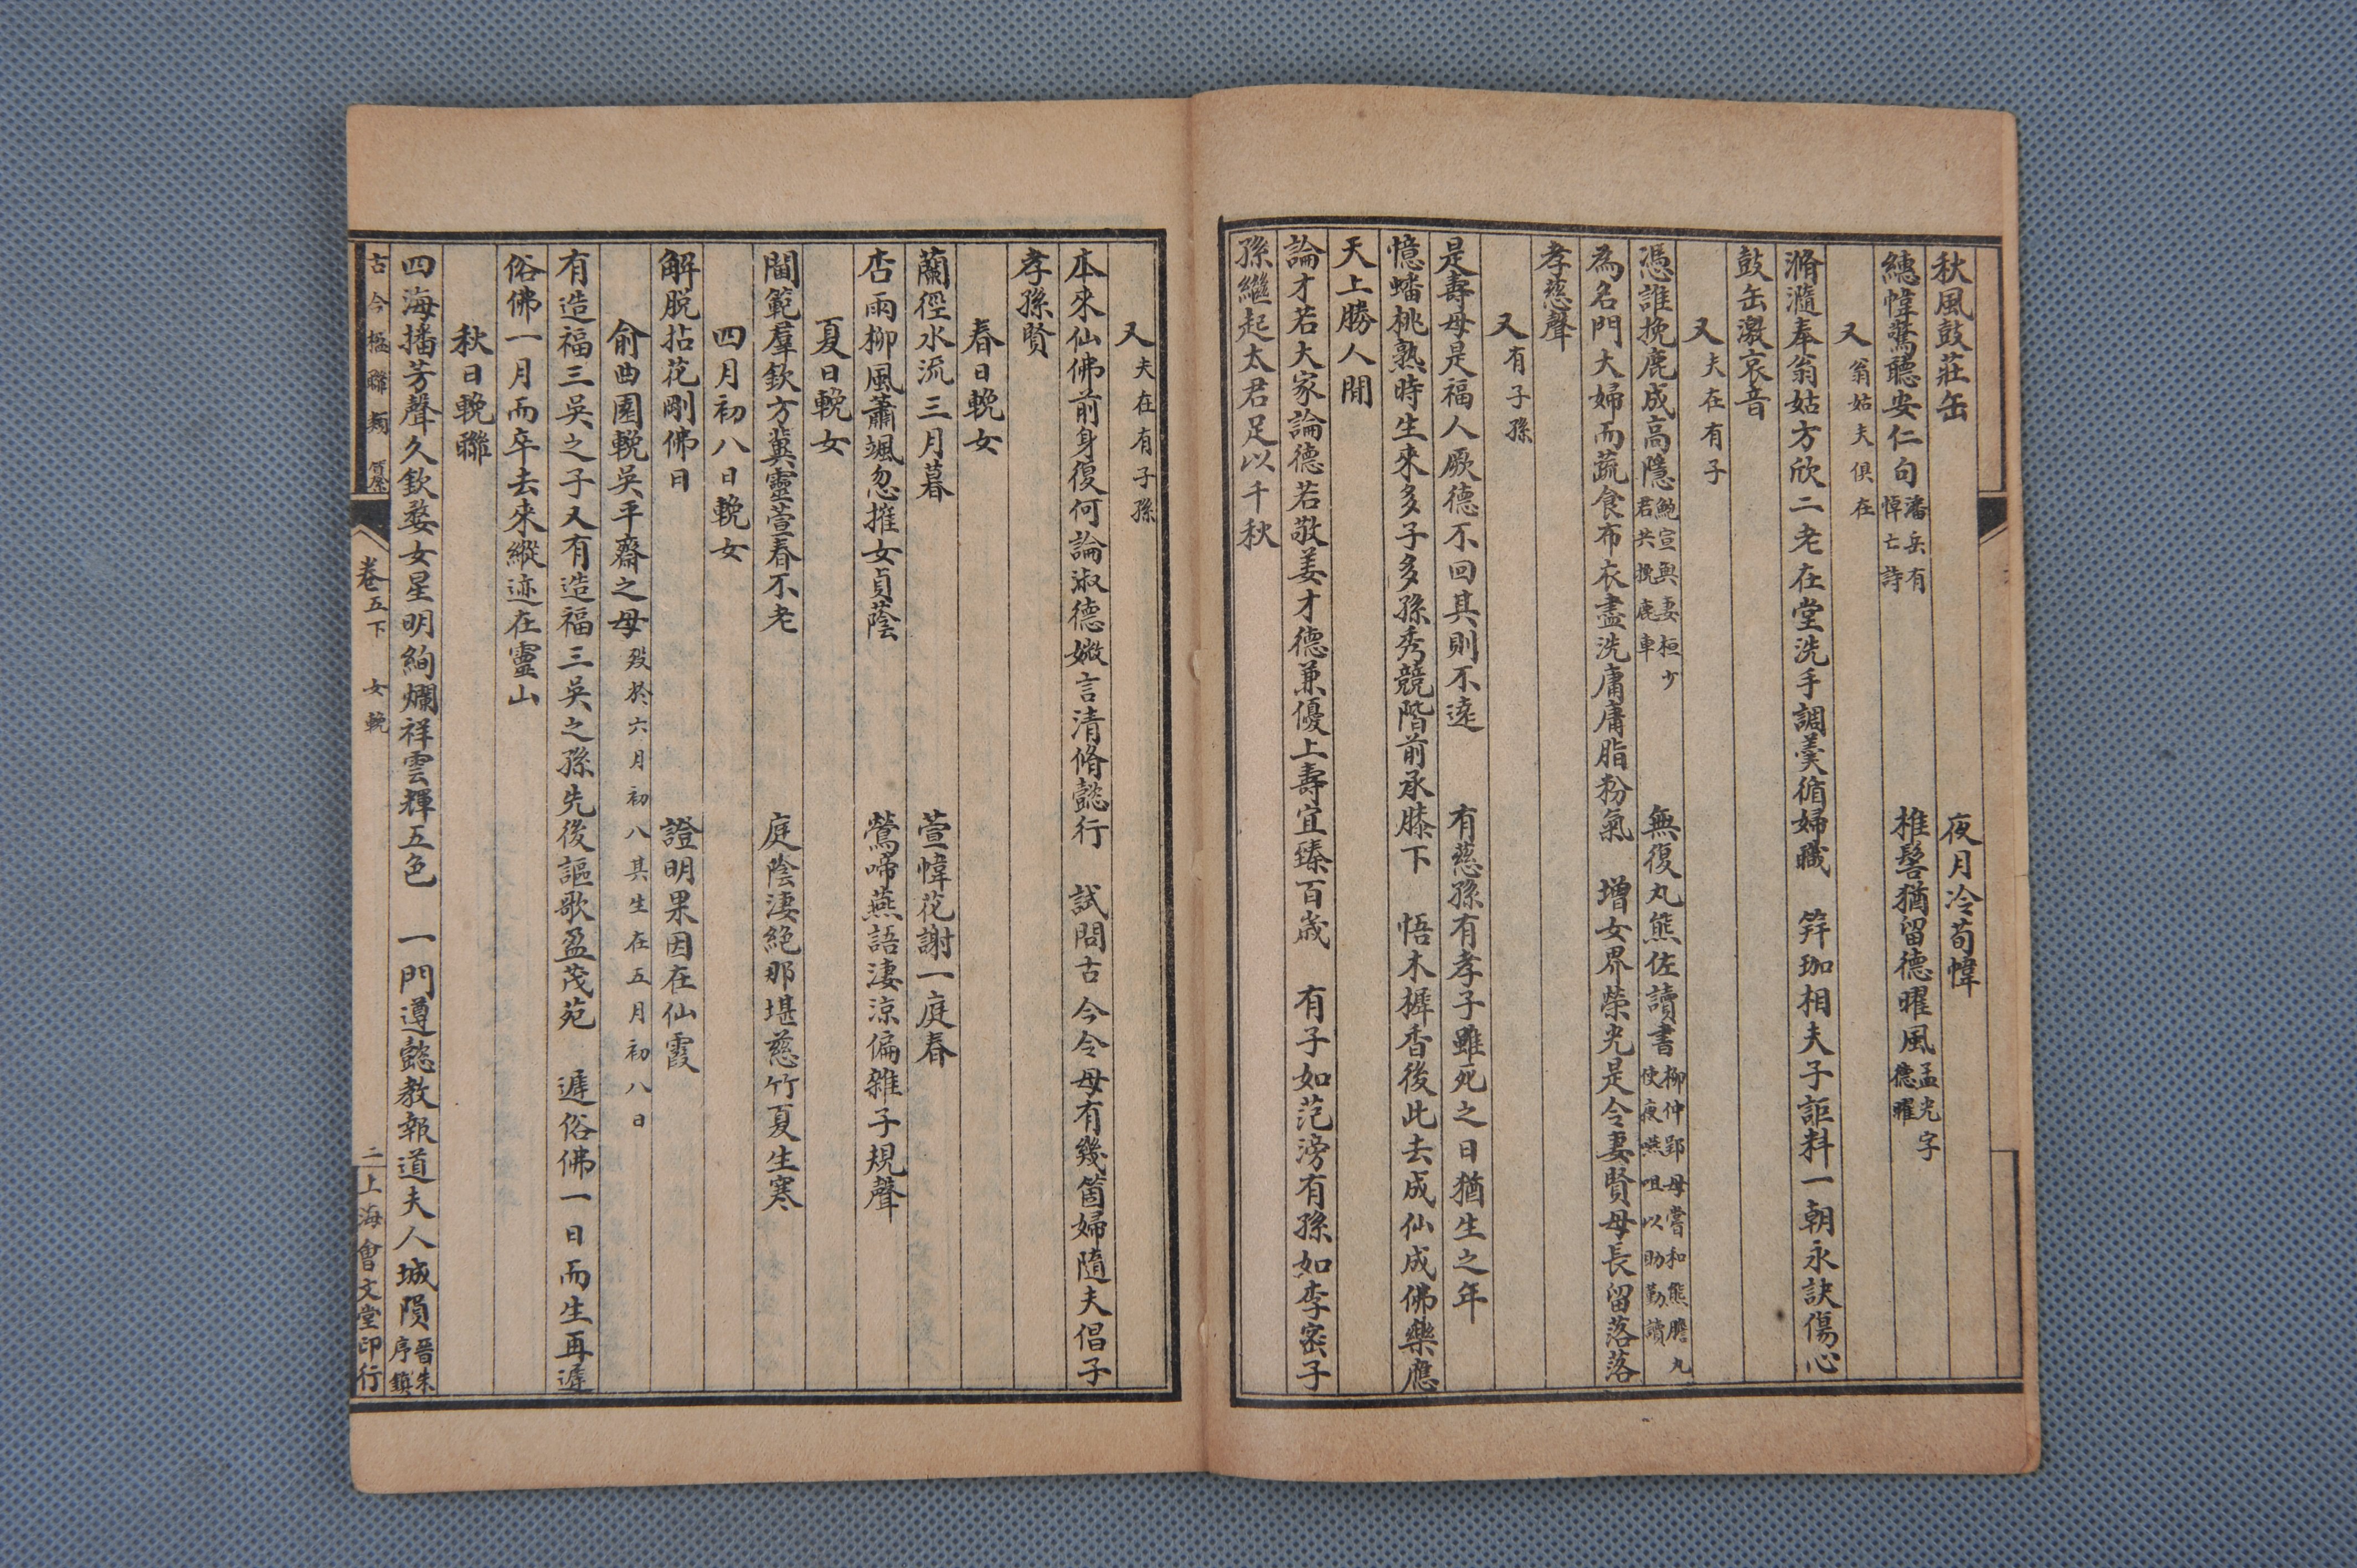 秋風鼓莊缶　夜月冷荀幃
繐幃驚聽安仁句潘岳有悼亡詩　椎髻猶留德曜風孟光字德曜
又翁姑夫俱在
滫瀡奉翁姑方欣二老在堂洗手調羹循婦職　笄珈相夫子詎料一朝永訣傷心
鼓缶激哀音
又夫在有子
憑誰挽鹿成高隱鮑宣與妻桓少君共挽鹿車　無復丸熊佐讀書柳仲郢母嘗和熊膽丸使夜嚥咀以助勤讀
為名門大婦而蔬食布衣盡洗庸庸脂粉氣　增女界榮光是令妻賢母長留落落
孝慈聲
又有子孫
是壽母是福人厥德不回其則不遠　有慈孫有孝子雖死之日猶生之年
憶蟠桃熟時生來多子多孫秀競階前承膝下　悟木樨香後此去成仙成佛樂應
天上勝人間
論才若大家論德若敬姜才德兼優上壽宜臻百歲　有子如范滂有孫如李密子
孫繼起太君足以千秋
又夫在有子孫
本來仙佛前身復何論淑德媺言清脩懿行　試問古今令母有幾箇婦隨夫倡子
孝孫賢
春日輓女
蘭徑水流三月暮　萱幃花謝一庭春
杏雨柳風蕭颯忽摧女貞蔭　鶯啼燕語淒涼偏雜子規聲
夏日輓女
閫範羣欽方冀靈萱春不老　庭陰淒絕那堪慈竹夏生寒
四月初八日輓女
解脫拈花剛佛日　證明果因在仙霞
俞曲園輓吳平齋之母歿於六月初八其生在五月初八日
有造福三吳之子又有造福三吳之孫先後謳歌盈茂苑　遲俗佛一日而生再遲
俗佛一月而卒去來縱迹在靈山
秋日輓聯
四海播芳聲久欽婺女星明絢爛祥雲輝五色　一門遵懿教報道夫人城隕晉朱序鎮
古今楹聯類
卷五下　女輓　二　上海會文堂印行